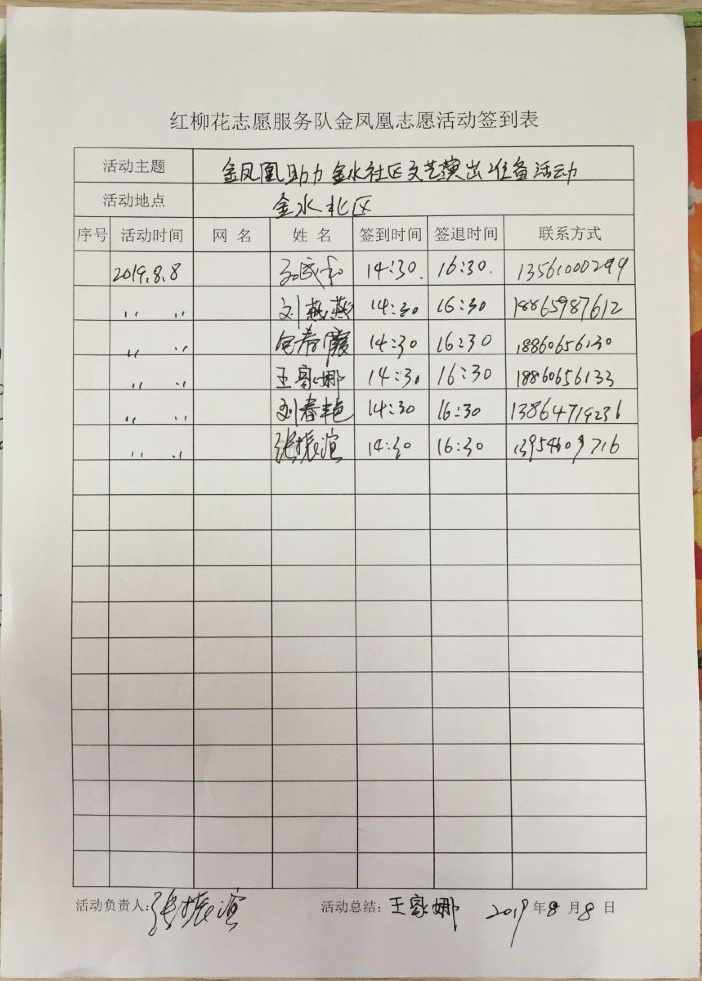 红柳花志愿服务队金凤凰志愿活动签到表
活动主题 金凤凰助力金水社区文艺演出准备活动
活动地点 金水北区
序号 活动时间 网 名 姓 名 签到时间 签退时间 联系方式
2019.8.8 14:30. 16:30. 13561000299
〃 〃 刘燕燕 14:30 16:30 18865987612
〃 〃 14:30 16:30 18860656130
〃 〃 王家娜 14:30 16:30 18860656133
〃 〃 刘春艳 14:30 16:30 13864719236
〃 〃 张振滨 14:30 16:30
活动负责人:张振滨 活动总结:王家娜 2019年8月8日